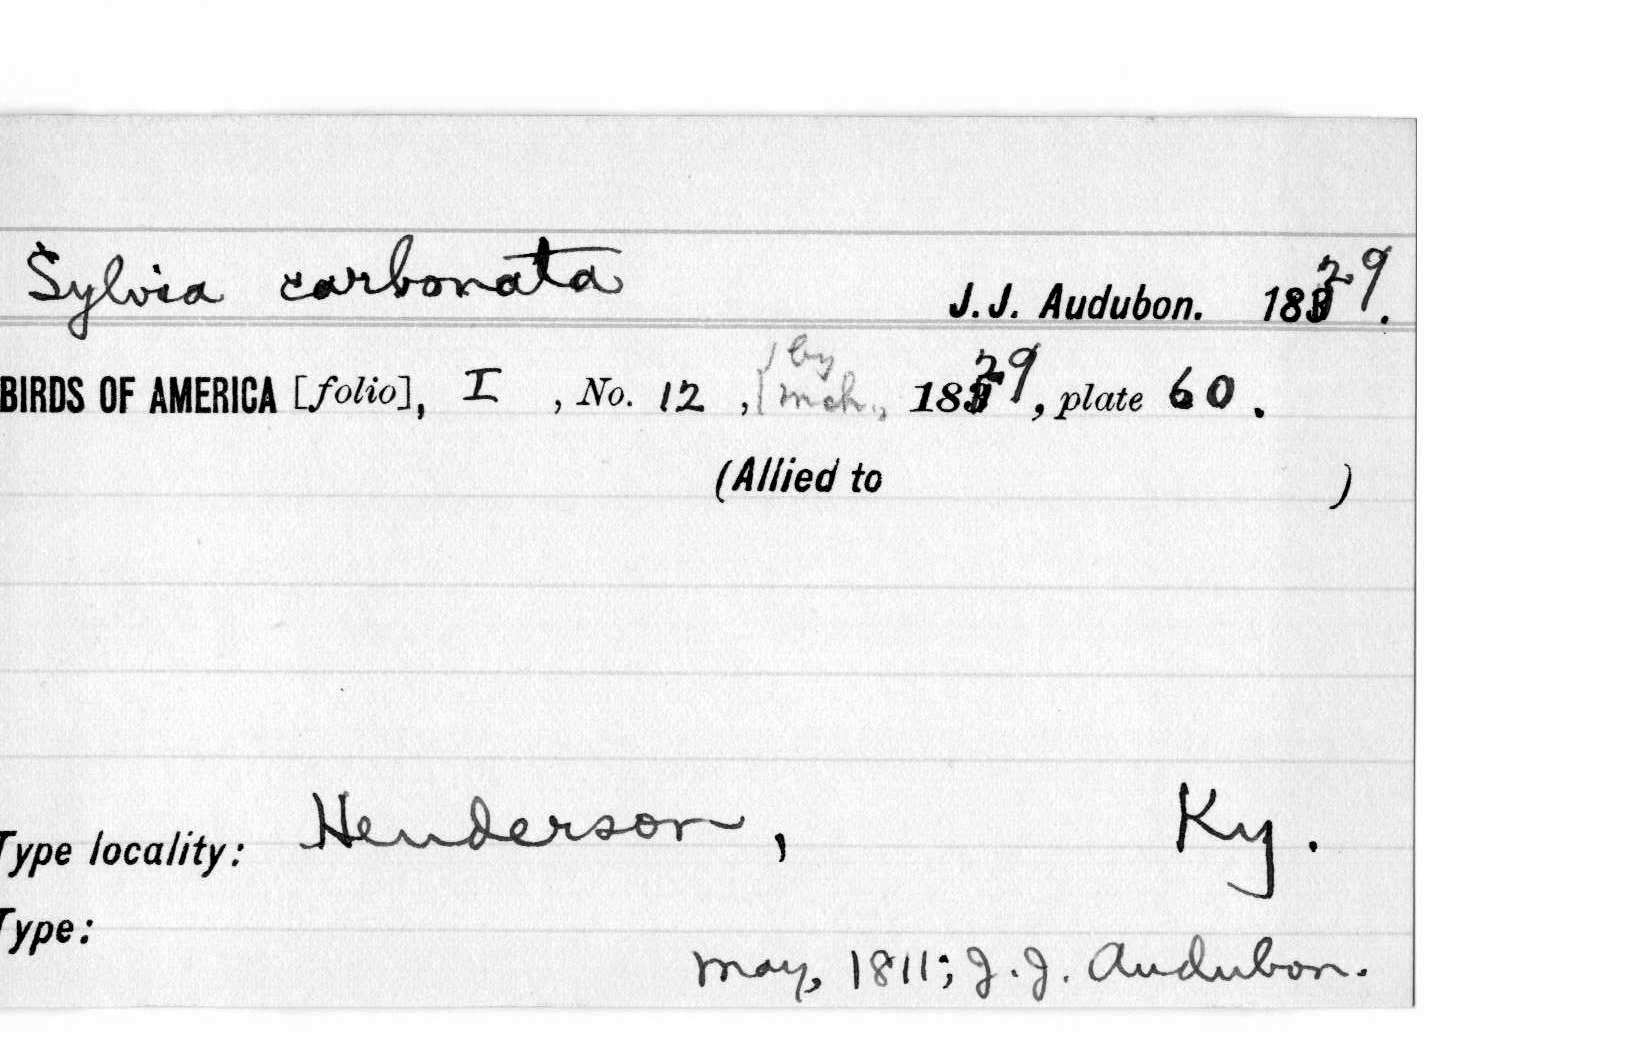 Sylvia carbonata J. J. Audubon. 1829.
BIRDS OF AMERICA [folio], I, No. 12, by Mch., 1829, plate 60.
(Allied to )
Type locality: Henderson, Ky.
Type:
May, 1811; J. J. Audubon.